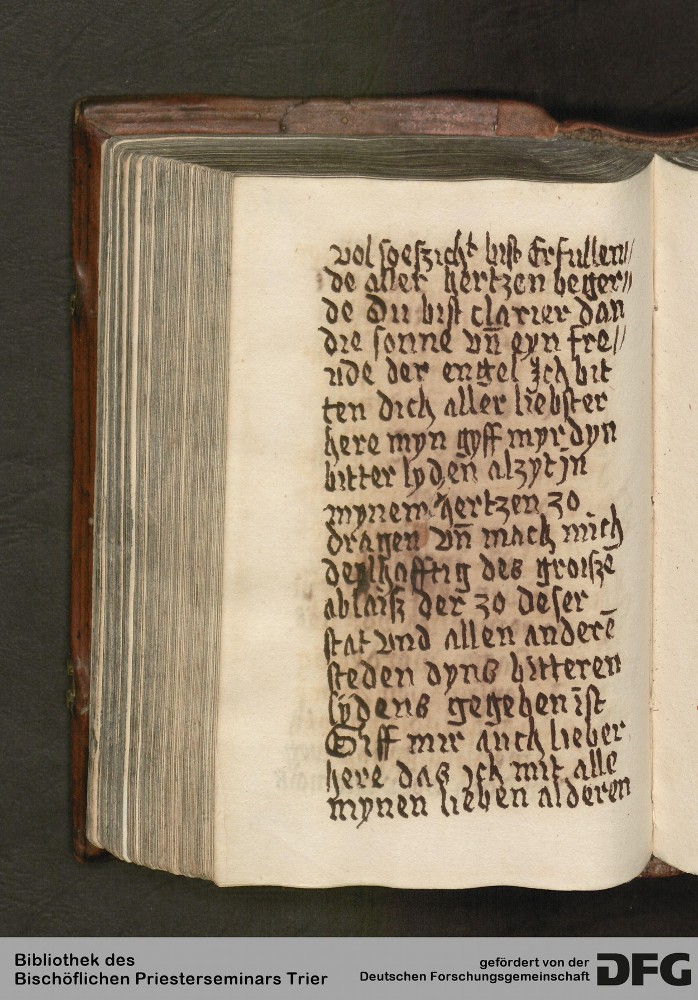 vol soeszicht bist Erfullen//
de aller hertzen beger//
de Du bist clarier dan
die sonne vn̄ eyn fre//
ude der engel Ich bit
ten dich aller liebster
here myn gyff myr dyn
bitter lyden alzyt jn
mynem hertzen zo
dragen vn̄ mach mich
deylhafftig des groiszē
ablaisz der zo deser
stat vnd allen anderē
steden dyns bitteren
lydens gegeben ist
Giff mir auch lieber
here das ich mit alle
mynen lieben alderen
Bibliothek des
Bischöflichen Priesterseminars Trier
gefördert von der
Deutschen Forschungsgemeinschaft
DFG